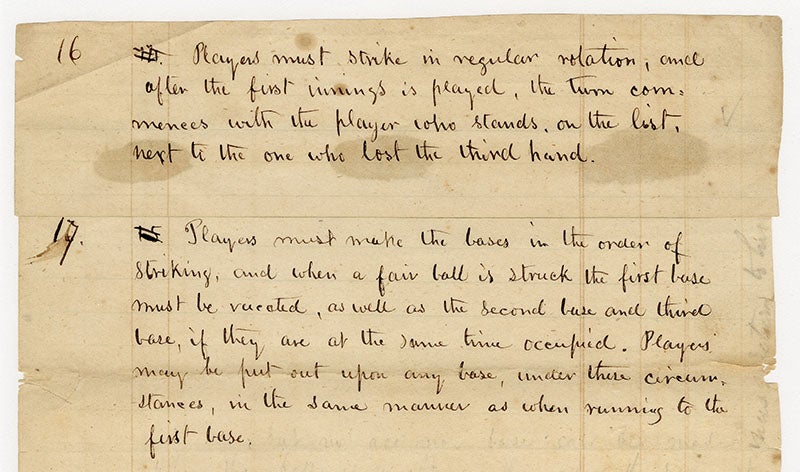 16 Players must strike in regular rotation, and
after the first innings is played, the turn com-
mences with the player who stands, on the list,
next to the one who lost the third hand.
17. Players must make the bases in the order of
striking, and when a fair ball is struck the first base
must be vacated, as well as the second base and third
base, if they are at the same time occupied. Players
may be put out upon any base, under these circum-
stances, in the same manner as when running to the
first base.